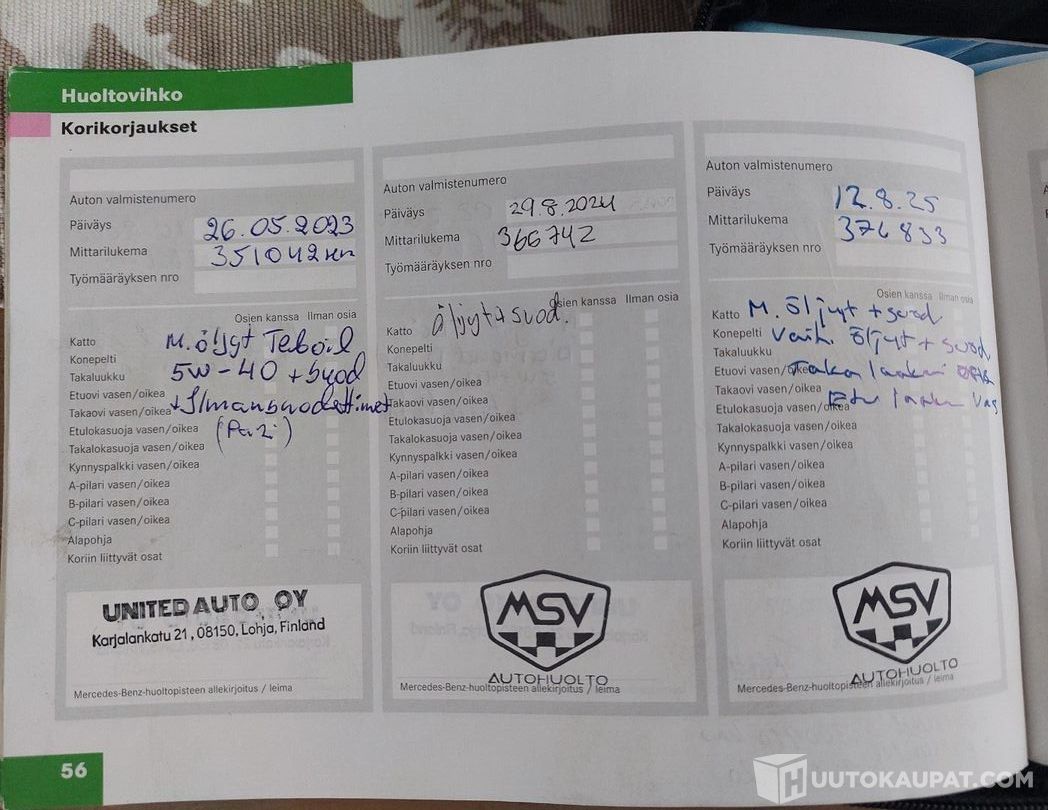 Huoltovihko
Korikorjaukset
Auton valmistenumero
Päiväys 26.05.2023
Mittarilukema 351042 km
Työmääräyksen nro
Osien kanssa Ilman osia
Katto
Konepelti
Takaluukku
Etuovi vasen/oikea
Takaovi vasen/oikea
Etulokasuoja vasen/oikea
Takalokasuoja vasen/oikea
Kynnyspalkki vasen/oikea
A-pilari vasen/oikea
B-pilari vasen/oikea
C-pilari vasen/oikea
Alapohja
Koriin liittyvät osat
M. öljyt Teboil
5W-40 + suod
+ Ilmansuodattimet
UNITED AUTO OY
Karjalankatu 21, 08150, Lohja, Finland
Mercedes-Benz-huoltopisteen allekirjoitus / leima
Auton valmistenumero
Päiväys 29.8.2024
Mittarilukema 366742
Työmääräyksen nro
Osien kanssa Ilman osia
Katto
Konepelti
Takaluukku
Etuovi vasen/oikea
Takaovi vasen/oikea
Etulokasuoja vasen/oikea
Takalokasuoja vasen/oikea
Kynnyspalkki vasen/oikea
A-pilari vasen/oikea
B-pilari vasen/oikea
C-pilari vasen/oikea
Alapohja
Koriin liittyvät osat
öljyt+suod.
MSV
AUTOHUOLTO
Mercedes-Benz-huoltopisteen allekirjoitus / leima
Auton valmistenumero
Päiväys 12.8.25
Mittarilukema 376833
Työmääräyksen nro
Osien kanssa Ilman osia
Katto
Konepelti
Takaluukku
Etuovi vasen/oikea
Takaovi vasen/oikea
Etulokasuoja vasen/oikea
Takalokasuoja vasen/oikea
Kynnyspalkki vasen/oikea
A-pilari vasen/oikea
B-pilari vasen/oikea
C-pilari vasen/oikea
Alapohja
Koriin liittyvät osat
M. öljyt + suod
Vaih. öljyt + suod
Taka
Etu vas
MSV
AUTOHUOLTO
Mercedes-Benz-huoltopisteen allekirjoitus / leima
56
HUUTOKAUPAT.COM